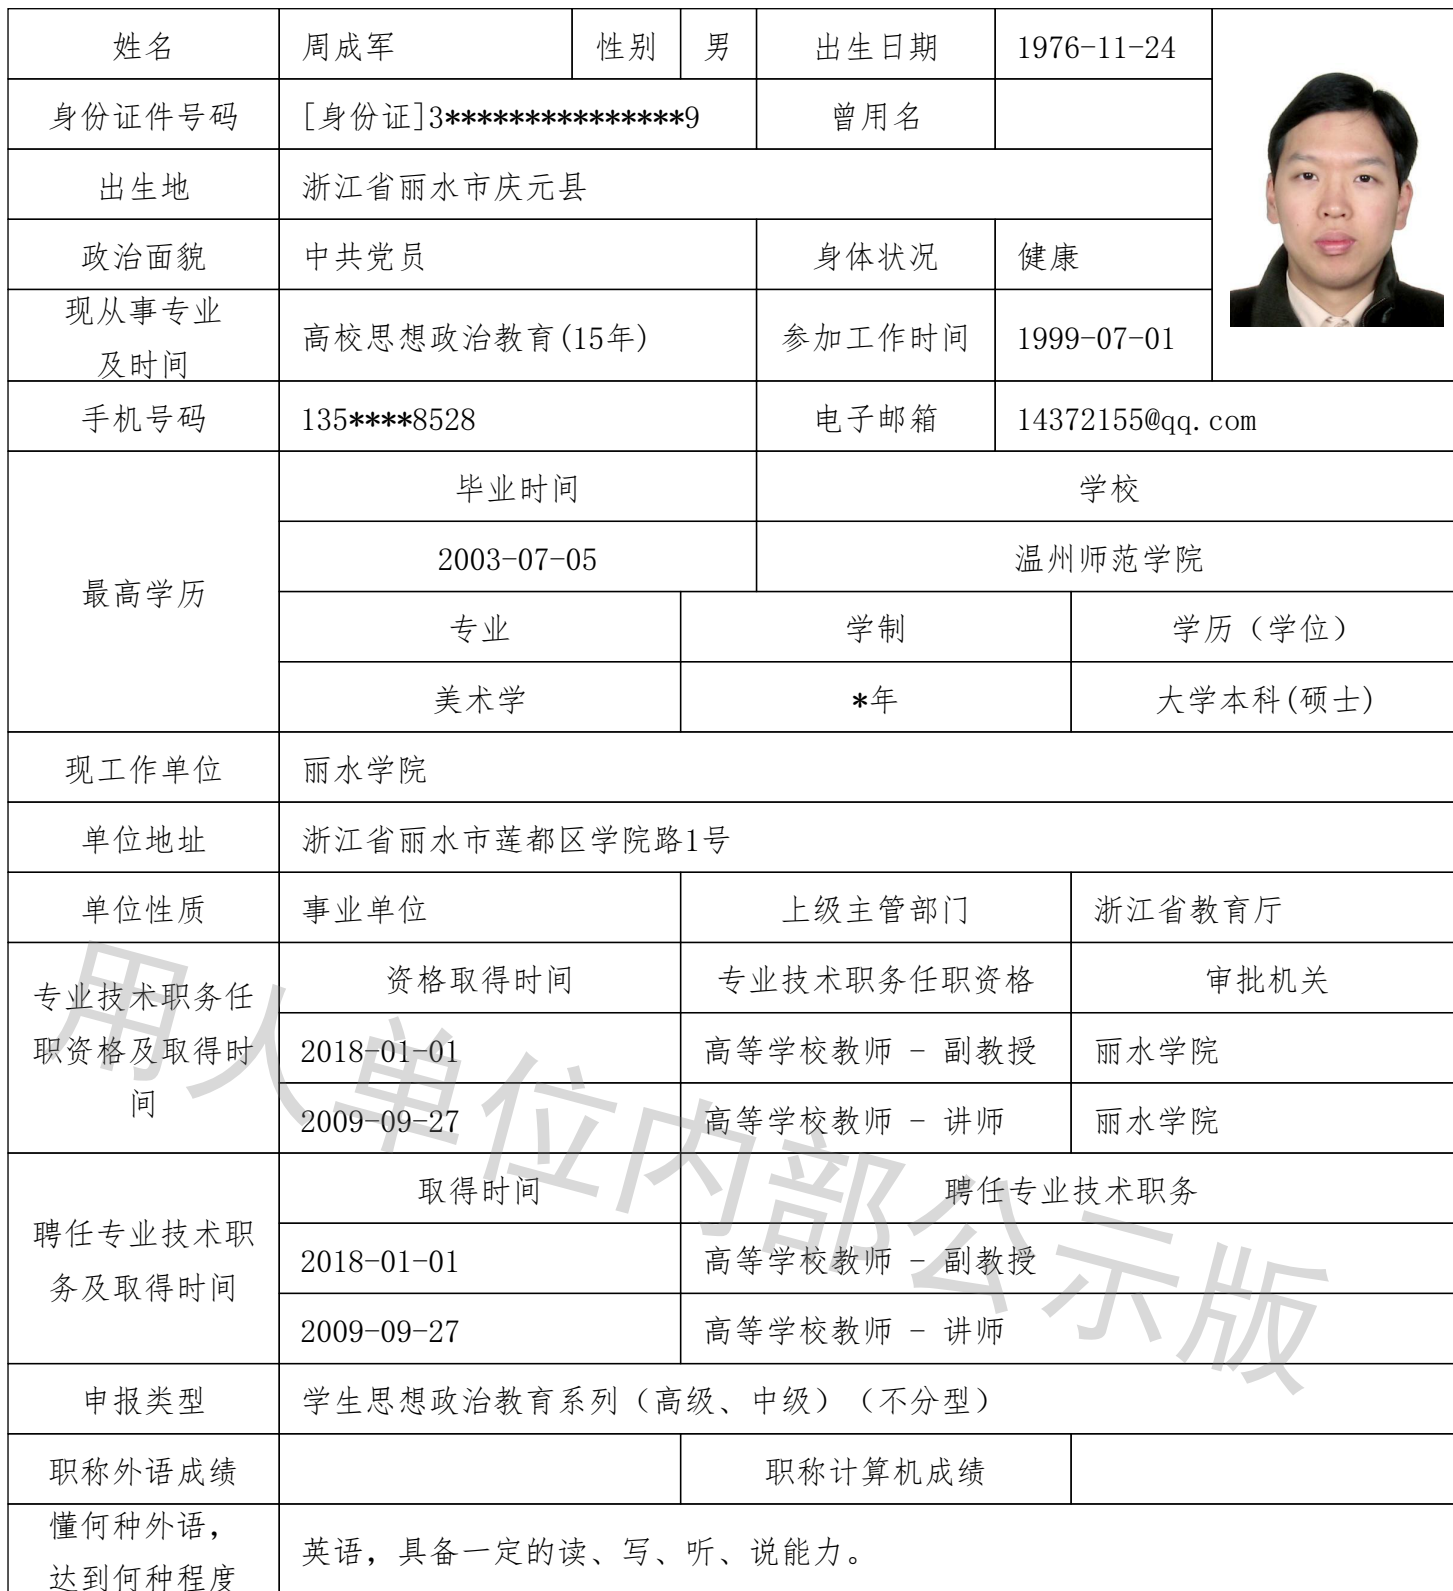 姓名 周成军 性别 男 出生日期 1976-11-24
身份证件号码 [身份证]3***************9 曾用名
出生地 浙江省丽水市庆元县
政治面貌 中共党员 身体状况 健康
现从事专业
及时间 高校思想政治教育(15年) 参加工作时间 1999-07-01
手机号码 135****8528 电子邮箱 14372155@qq.com
最高学历
毕业时间 学校
2003-07-05 温州师范学院
专业 学制 学历（学位）
美术学 *年 大学本科(硕士)
现工作单位 丽水学院
单位地址 浙江省丽水市莲都区学院路1号
单位性质 事业单位 上级主管部门 浙江省教育厅
专业技术职务任
职资格及取得时
间
资格取得时间 专业技术职务任职资格 审批机关
2018-01-01 高等学校教师 - 副教授 丽水学院
2009-09-27 高等学校教师 - 讲师 丽水学院
聘任专业技术职
务及取得时间
取得时间 聘任专业技术职务
2018-01-01 高等学校教师 - 副教授
2009-09-27 高等学校教师 - 讲师
申报类型 学生思想政治教育系列（高级、中级）（不分型）
职称外语成绩 职称计算机成绩
懂何种外语，
达到何种程度 英语，具备一定的读、写、听、说能力。
用人单位内部公示版